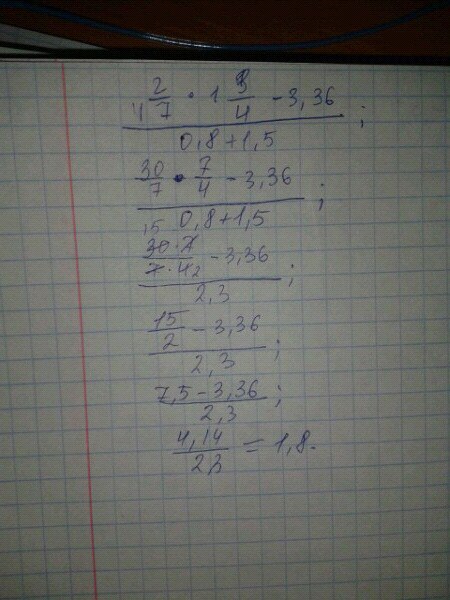 4 2/7 · 1 3/4 - 3,36 ;
0,8 + 1,5
30/7 · 7/4 - 3,36 ;
0,8 + 1,5
15
30·7/7·4 2 - 3,36 ;
2,3
15/2 - 3,36 ;
2,3
7,5 - 3,36 ;
2,3
4,14 = 1,8.
2,3